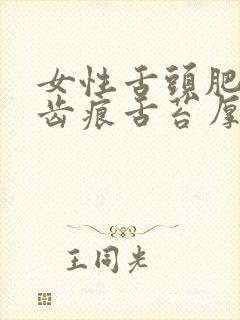 女性舌頭肥
齿痕舌苔厚
王同光